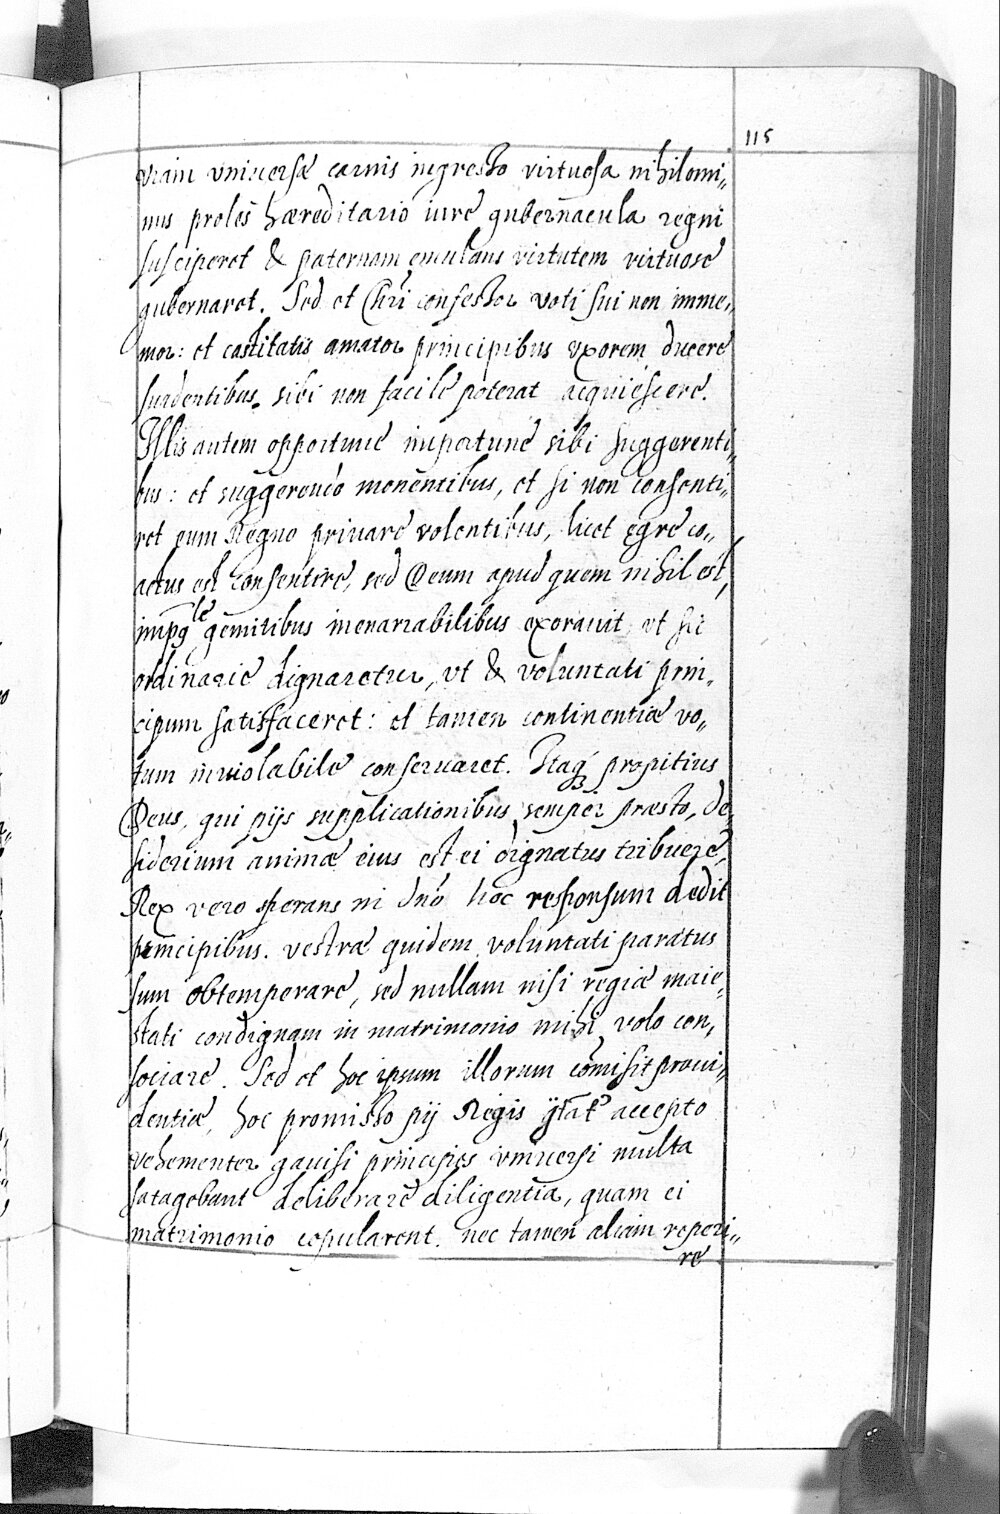 115
viam vniuersæ carnis ingresso virtuosa nihilomi„
nus proles hæreditario iure gubernacula regni
susciperet & paternam emulans virtutem virtuose
gubernaret. Sed et Chri confessor voti sui non imme„
mor: et castitatis amator principibus vxorem ducere
suadentibus sibi non facile poterat acquiescere.
Illis autem opportune importune sibi suggerenti„
bus: et suggerendo monentibus, et si non consenti„
ret eum Regno priuare volentibus, licet egre co„
actus est consentire, sed Deum apud quem nihil est
impgle gemitibus inenarrabilibus exorauit, vt sic
ordinare dignaretur, vt & voluntati prin„
cipum satisfaceret: et tamen continentiæ vo„
tum inuiolabile conseruaret. Itaq propitius
Deus, qui pijs supplicationibus semper præsto, de„
siderium animæ eius est ei dignatus tribuere,
Rex vero sperans in dno hoc responsum dedit
principibus. vestræ quidem voluntati paratus
sum obtemperare, sed nullam nisi regiæ maie„
stati condignam in matrimonio mihi volo con„
sociare. Sed et hoc ipsum illorum comisit proui„
dentiæ, hoc promisso pij Regis accepto
vehementer gauisi principes vniuersi multa
satagebant deliberare diligentia, quam ei
matrimonio copularent. nec tamen aliam reperi„
re